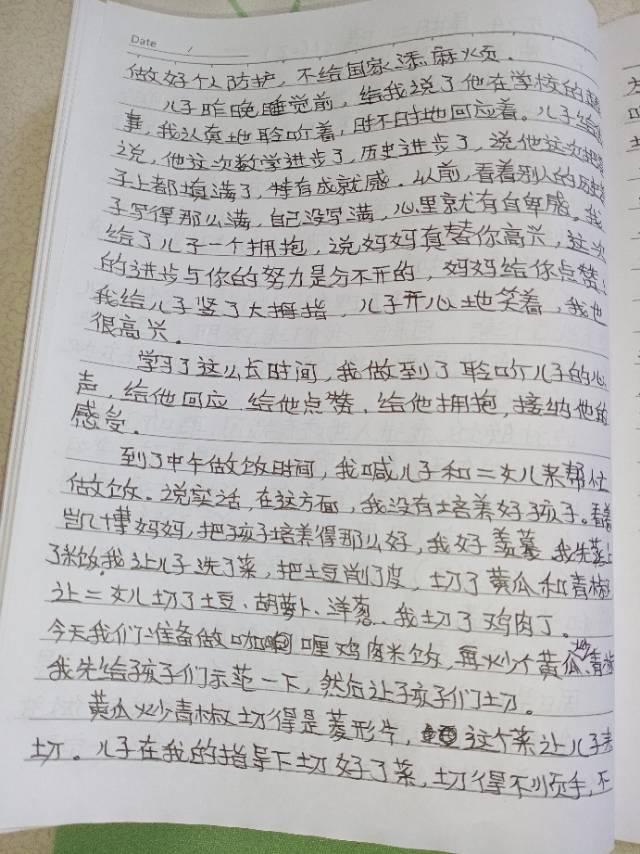 Date /
做好个人防护，不给国家添麻烦。
儿子昨晚睡觉前，给我说了他在学校的趣
事，我认真地聆听着，时不时地回应着。儿子给我
说，他这次数学进步了，历史进步了，说他这次把
子上都填满了，特有成就感。从前，看着别人的
子写得那么满，自己没写满，心里就有自卑感。我
给了儿子一个拥抱，说妈妈真替你高兴，这次
的进步与你的努力是分不开的，妈妈给你点赞！
我给儿子竖了大拇指，儿子开心地笑着，我也
很高兴。
学习了这么长时间，我做到了聆听儿子的心
声，给他回应，给他点赞，给他拥抱，接纳他的
感受。
到了中午做饭时间，我喊儿子和二女儿来帮忙
做饭。说实话，在这方面，我没有培养好孩子。看着
凯博妈妈，把孩子培养得那么好，我好羡慕。我先蒸上
了米饭，我让儿子洗了菜，把土豆削了皮，切了黄瓜和青椒
让二女儿切了土豆、胡萝卜、洋葱。我切了鸡肉丁。
今天我们准备做咖喱鸡肉米饭，再炒个黄瓜炒青椒
我先给孩子们示范一下，然后让孩子们切。
黄瓜炒青椒切得是菱形片，这个菜让儿子来
切。儿子在我的指导下切好了菜，切得不顺手，不